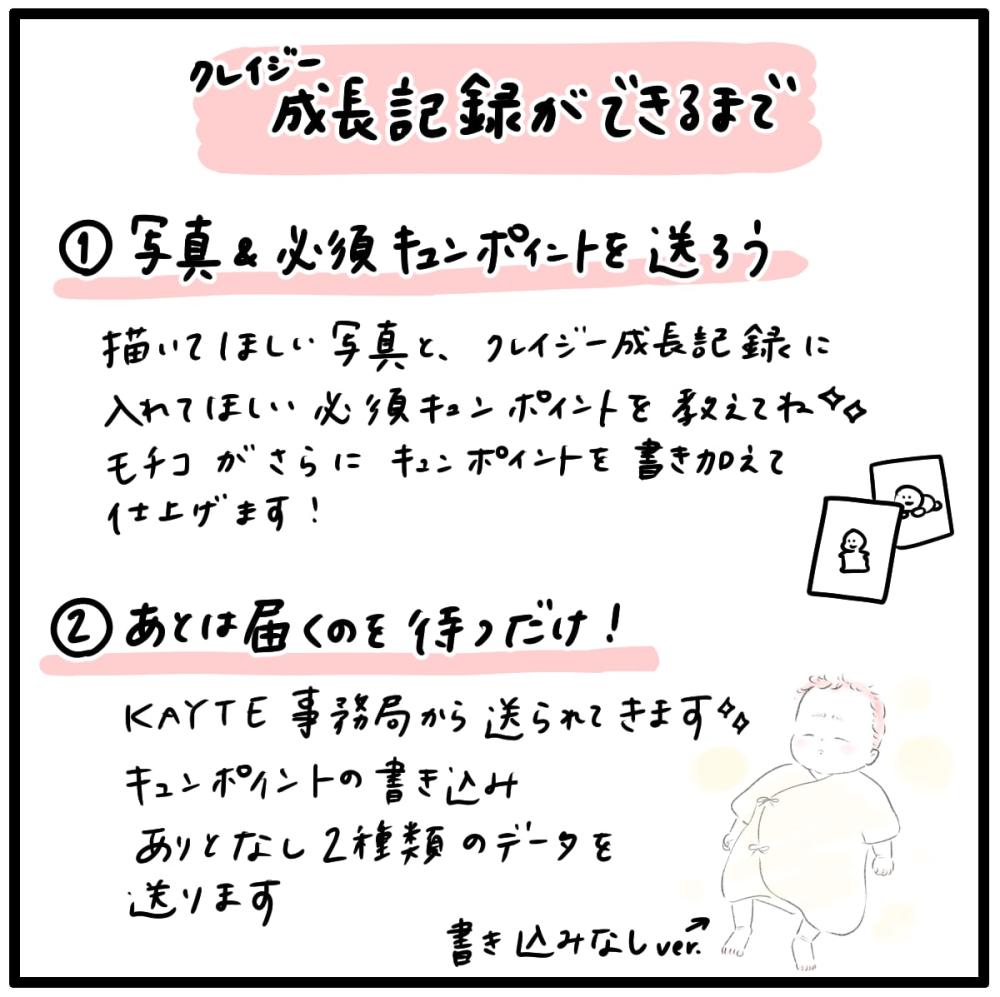 クレイジー
成長記録ができるまで
① 写真&必須キュンポイントを送ろう
描いてほしい写真と、クレイジー成長記録に
入れてほしい必須キュンポイントを教えてね
モチコがさらにキュンポイントを書き加えて
仕上げます!
② あとは届くのを待つだけ!
KAYTE事務局から送られてきます
キュンポイントの書き込み
ありとなし2種類のデータを
送ります
書き込みなしver.↗